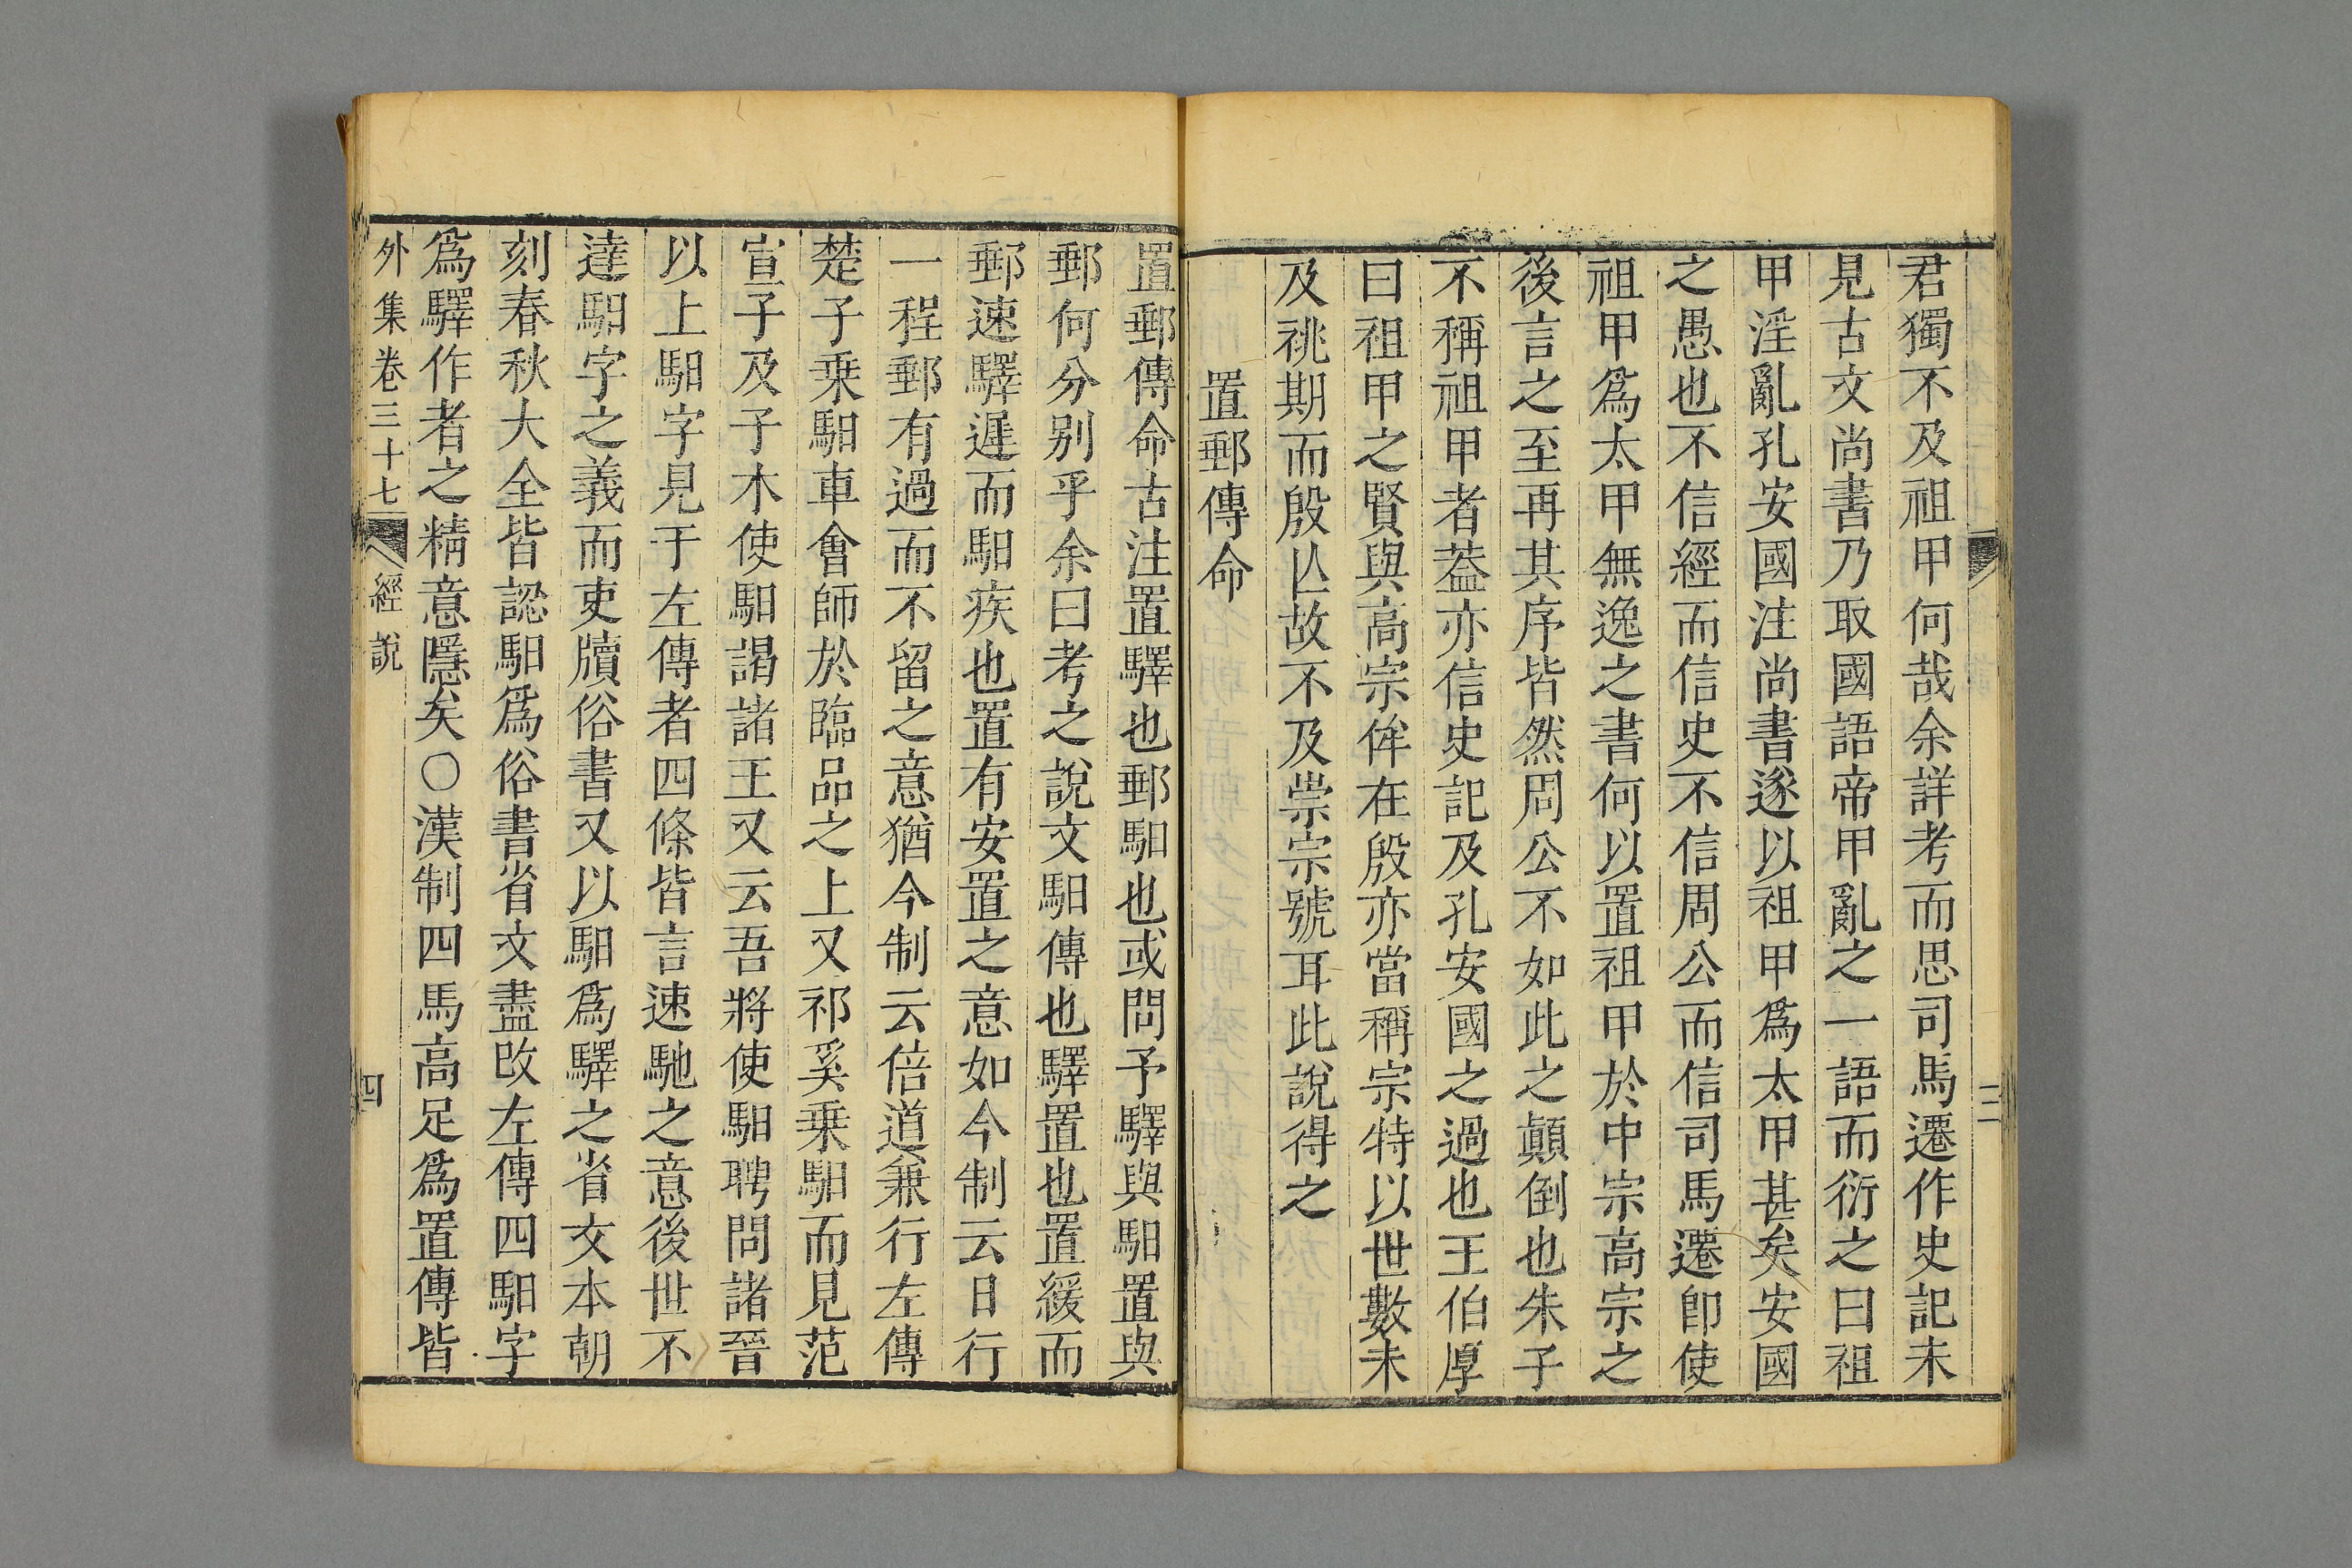 君獨不及祖甲何哉余詳考而思司馬遷作史記未
見古文尚書乃取國語帝甲亂之一語而衍之曰祖
甲淫亂孔安國注尚書遂以祖甲爲太甲甚矣安國
之愚也不信經而信史不信周公而信司馬遷卽使
祖甲爲太甲無逸之書何以置祖甲於中宗高宗之
後言之至再其序皆然周公不如此之顛倒也朱子
不稱祖甲者葢亦信史記及孔安國之過也王伯厚
曰祖甲之賢與高宗侔在殷亦當稱宗特以世數未
及祧期而殷亾故不及崇宗號耳此說得之
置郵傳命
置郵傳命古注置驛也郵馹也或問予驛與馹置與
郵何分别乎余曰考之說文馹傳也驛置也置緩而
郵速驛遲而馹疾也置有安置之意如今制云日行
一程郵有過而不留之意猶今制云倍道兼行左傳
楚子乗馹車會師於臨品之上又祁奚乗馹而見范
宣子及子木使馹謁諸王又云吾將使馹聘問諸晉
以上馹字見于左傳者四條皆言速馳之意後世不
達馹字之義而吏牘俗書又以馹爲驛之省文本朝
刻春秋大全皆認馹爲俗書省文盡改左傳四馹字
爲驛作者之精意隱矣○漢制四馬高足爲置傳皆
外集卷三十七 經說 四